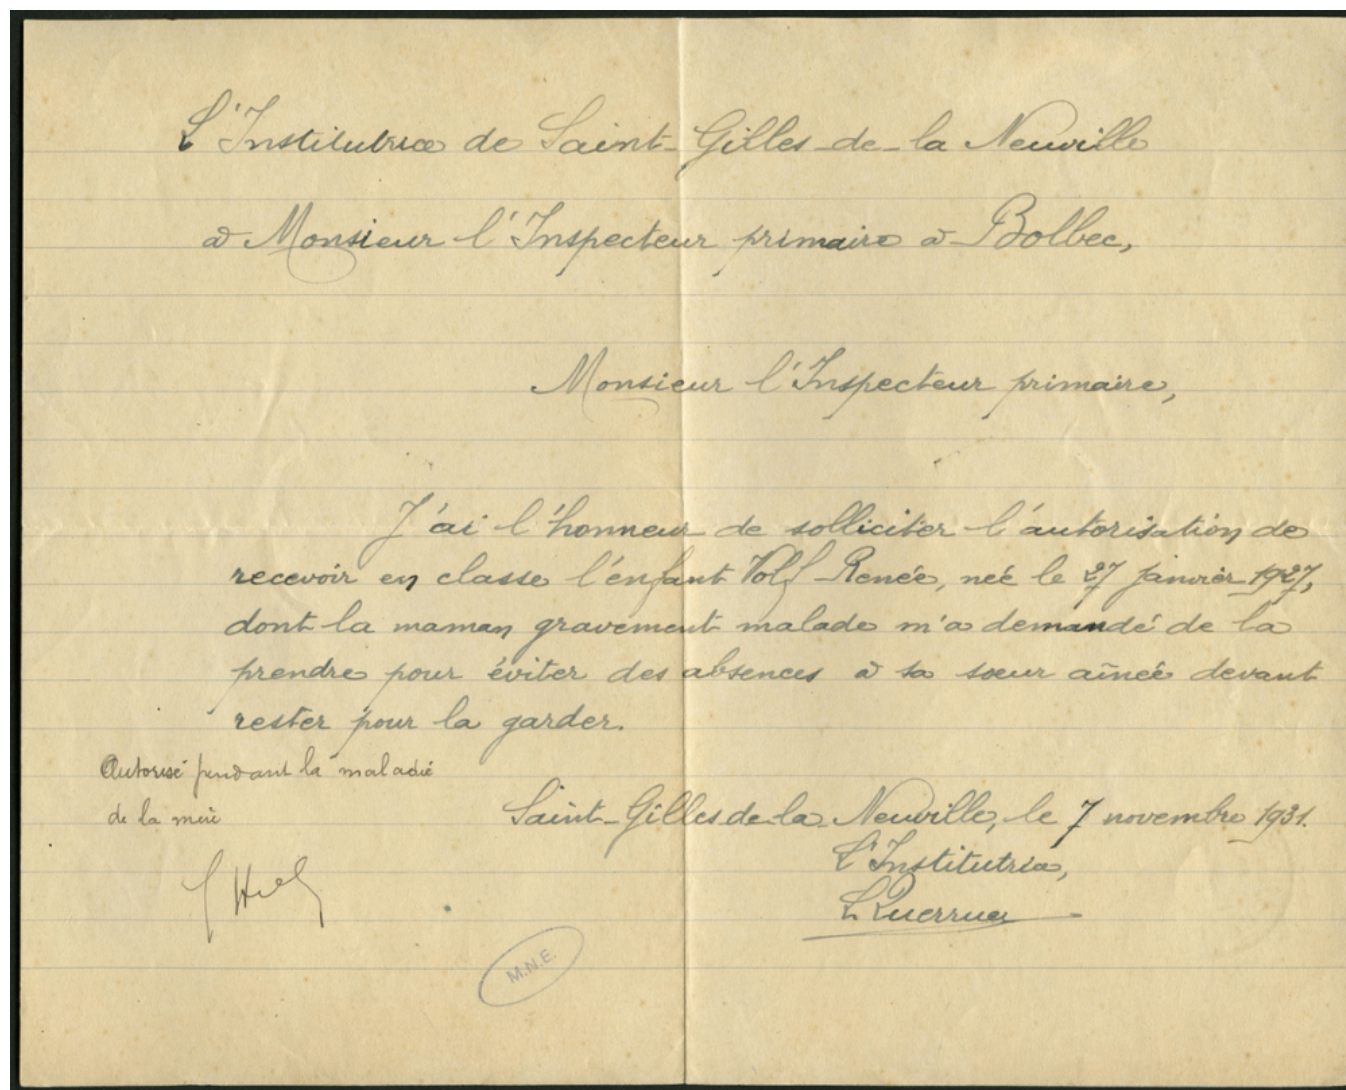 L'Institutrice de Saint-Gilles-de-la Neuville
à Monsieur l'Inspecteur primaire à Bolbec,
Monsieur l'Inspecteur primaire,
J'ai l'honneur de solliciter l'autorisation de
recevoir en classe l'enfant Volf Renée, née le 27 janvier 1927,
dont la maman gravement malade m'a demandé de la
prendre pour éviter des absences à sa sœur aînée devant
rester pour la garder.
Autorisé pendant la maladie
de la mère
Saint-Gilles-de-la-Neuville, le 7 novembre 1931.
L'Institutrice,
M.N.E.